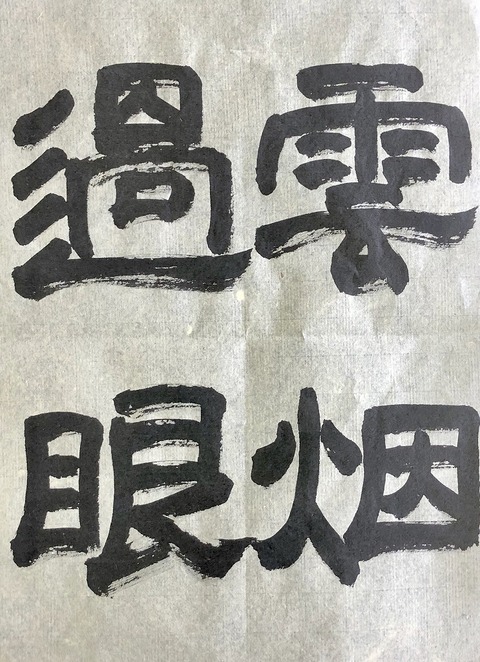 雲烟
過眼